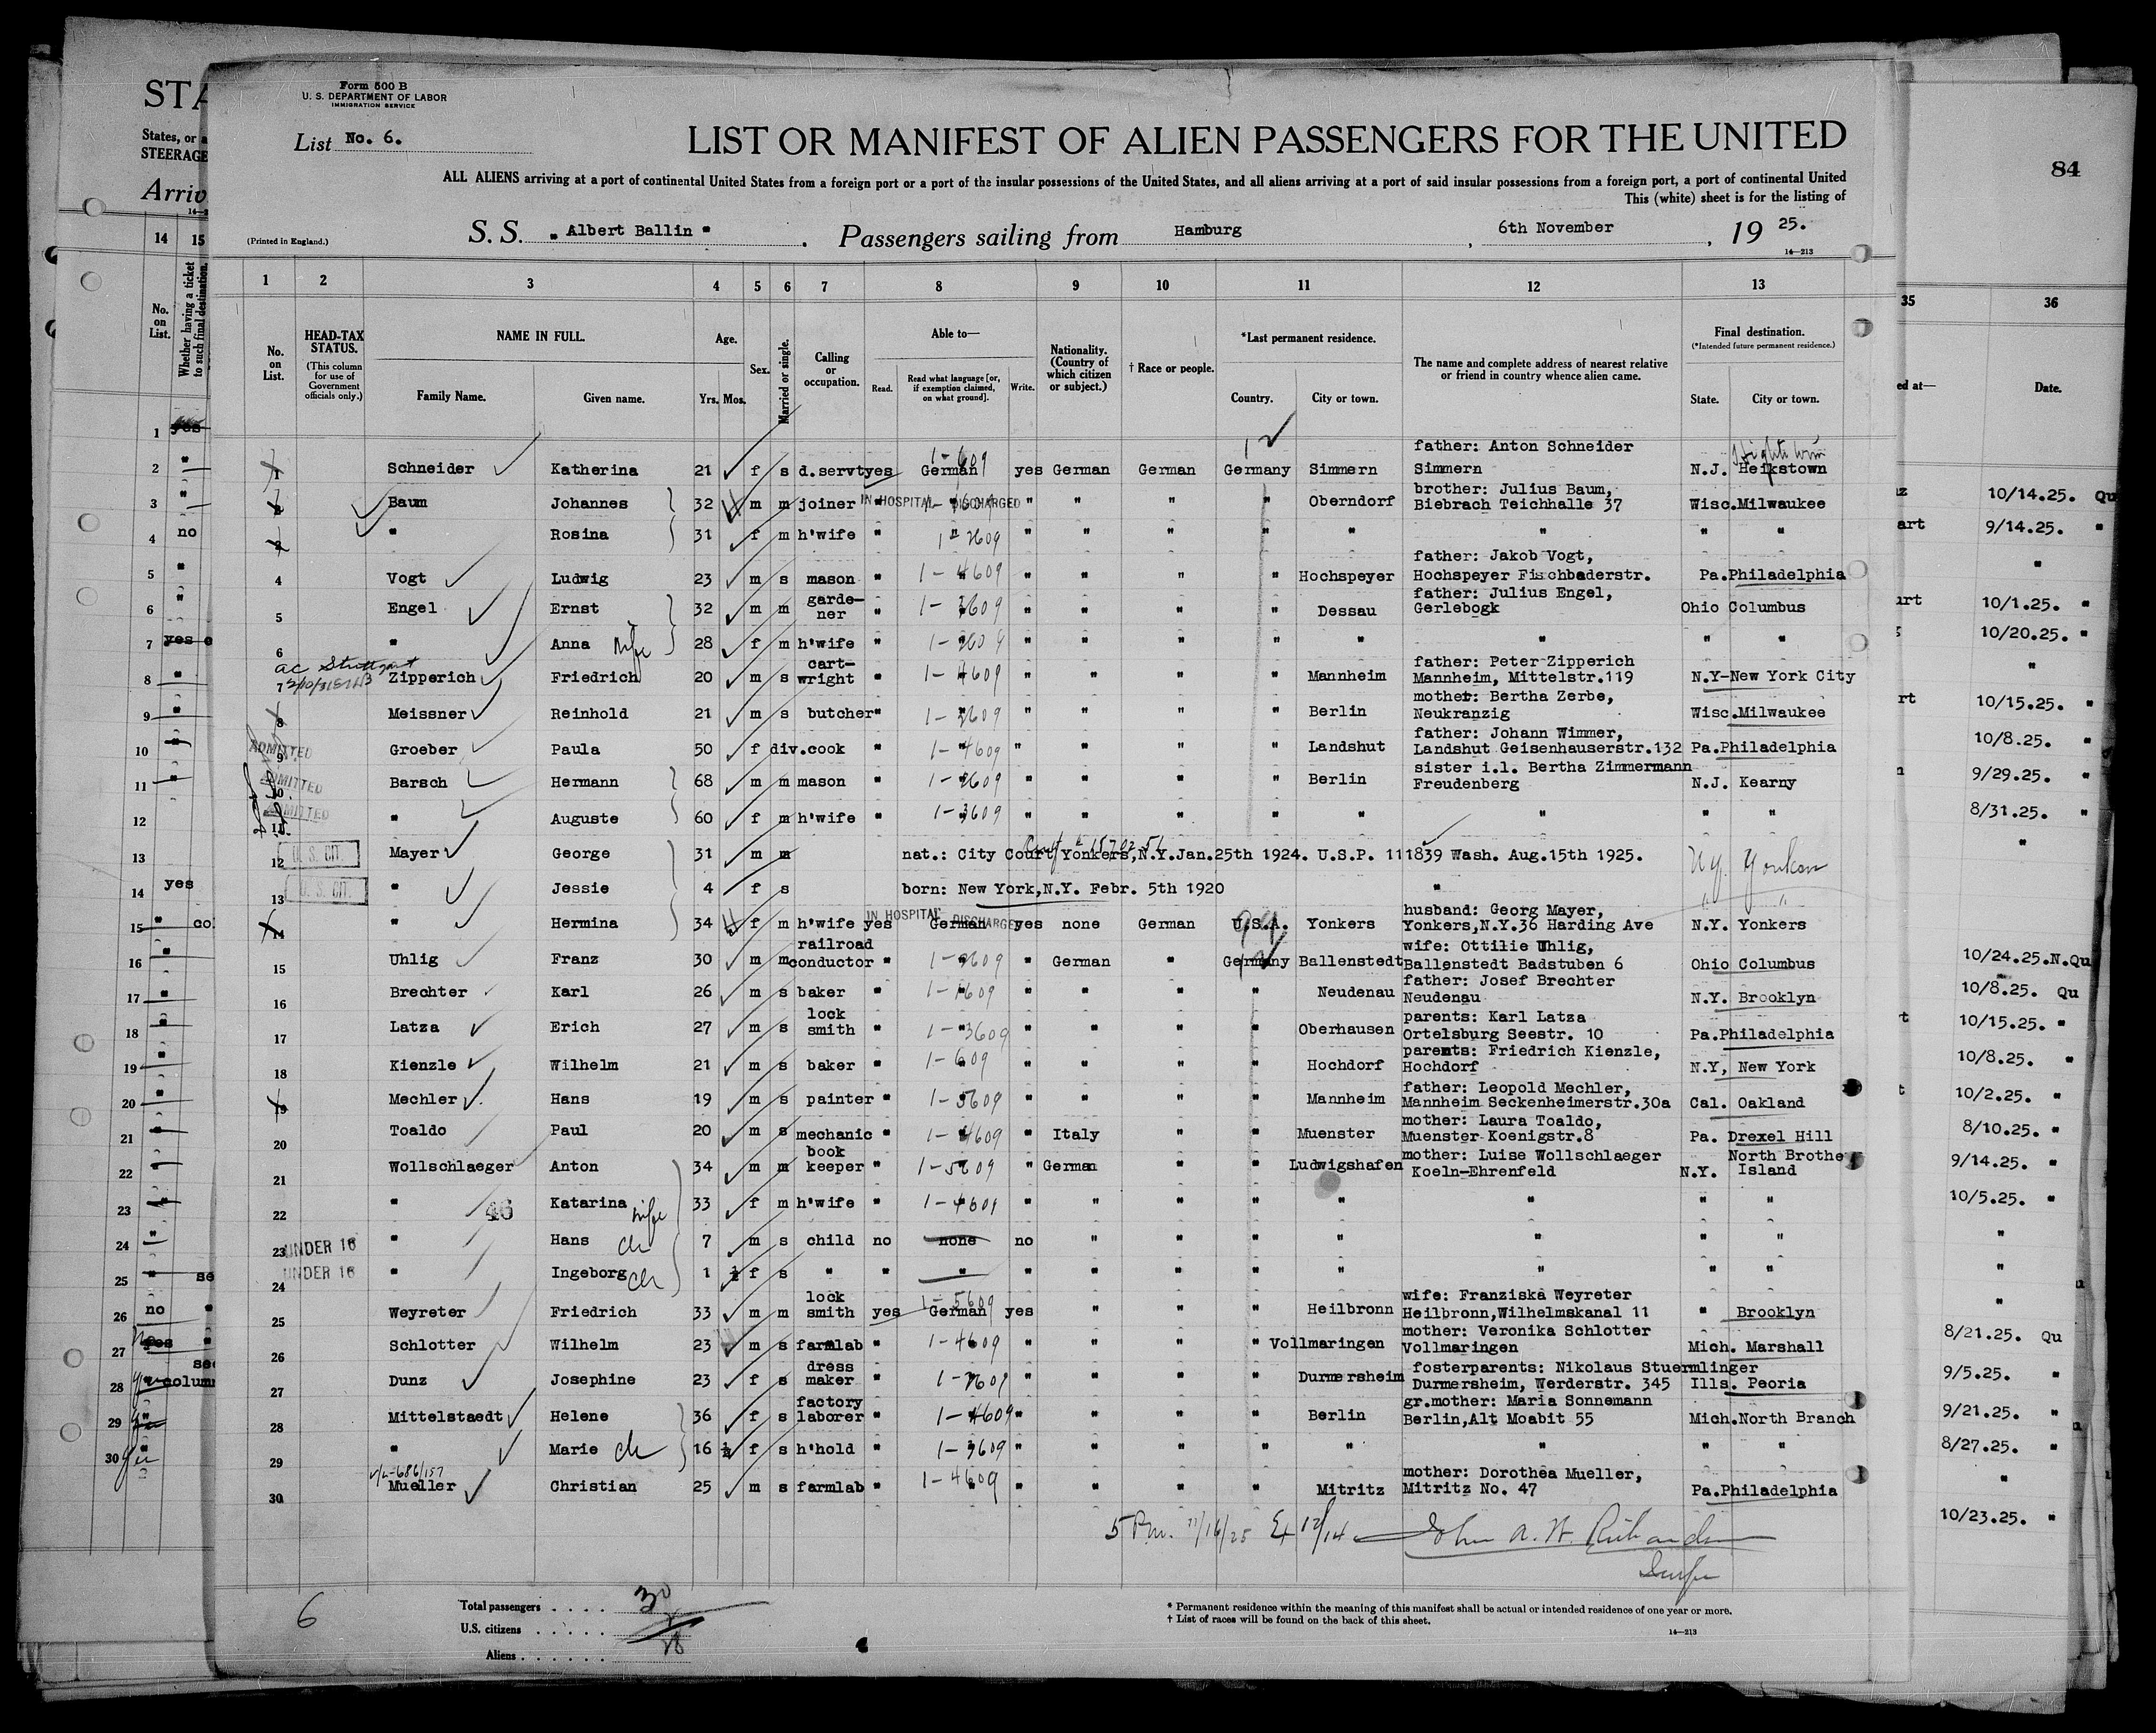 STA
States, or a
STEERAGE
Arriv
Form 500 B
U. S. DEPARTMENT OF LABOR
IMMIGRATION SERVICE
List No. 6.
LIST OR MANIFEST OF ALIEN PASSENGERS FOR THE UNITED
84
ALL ALIENS arriving at a port of continental United States from a foreign port or a port of the insular possessions of the United States, and all aliens arriving at a port of said insular possessions from a foreign port, a port of continental United
This (white) sheet is for the listing of
(Printed in England.)
S. S. "Albert Ballin" . Passengers sailing from Hamburg , 6th November , 19 25.
14—213
14 15
1 2 3 4 5 6 7 8 9 10 11 12 13
35 36
No. on List.
Whether having a ticket to such final destination.
No. on List.
HEAD-TAX STATUS.
(This column for use of Government officials only.)
NAME IN FULL.
Family Name. Given name.
Age.
Yrs. Mos.
Sex.
Married or single.
Calling or occupation.
Able to—
Read. Read what language [or, if exemption claimed, on what ground]. Write.
Nationality. (Country of which citizen or subject.)
† Race or people.
*Last permanent residence.
Country. City or town.
The name and complete address of nearest relative or friend in country whence alien came.
Final destination.
(*Intended future permanent residence.)
State. City or town.
ed at—
Date.
father: Anton Schneider
1 Schneider Katherina 21 f s d.servt yes German yes German German Germany Simmern Simmern N.J. Heikstown
brother: Julius Baum,
2 Baum Johannes 32 m m joiner " IN HOSPITAL DISCHARGED " " " " Oberndorf Biebrach Teichhalle 37 Wisc. Milwaukee
3 " Rosina 31 f m h'wife " 1-2609 " " " " " " " "
father: Jakob Vogt,
4 Vogt Ludwig 23 m s mason " 1-4609 " " " " Hochspeyer Hochspeyer Fischbaderstr. Pa. Philadelphia
father: Julius Engel,
5 Engel Ernst 32 m m gardener " 1-3609 " " " " Dessau Gerlebogk Ohio Columbus
6 " Anna wife 28 f m h'wife " 1-2609 " " " " " " " "
father: Peter Zipperich
7 Zipperich Friedrich 20 m s cartwright " 1-4609 " " " " Mannheim Mannheim, Mittelstr.119 N.Y-New York City
mother: Bertha Zerbe,
8 Meissner Reinhold 21 m s butcher " 1-3609 " " " " Berlin Neukranzig Wisc. Milwaukee
father: Johann Wimmer,
ADMITTED
9 Groeber Paula 50 f div. cook " 1-4609 " " " " Landshut Landshut Geisenhauserstr.132 Pa. Philadelphia
sister i.l. Bertha Zimmermann
ADMITTED
10 Barsch Hermann 68 m m mason " 1-2609 " " " " Berlin Freudenberg N.J. Kearny
ADMITTED
11 " Auguste 60 f m h'wife " 1-3609 " " " " " " " "
12 U. S. CIT. Mayer George 31 m m nat.: City Court Yonkers, N.Y. Jan. 25th 1924. U.S.P. 111839 Wash. Aug. 15th 1925. NY. Yonkers
13 U. S. CIT. " Jessie 4 f s born: New York, N.Y. Febr. 5th 1920 " " "
husband: Georg Mayer,
14 " Hermina 34 f m h'wife yes IN HOSPITAL DISCHARGED German yes none German U.S.A. Yonkers Yonkers, N.Y. 36 Harding Ave N.Y. Yonkers
wife: Ottilie Uhlig,
15 Uhlig Franz 30 m m railroad conductor " 1-3609 " German " Germany Ballenstedt Ballenstedt Badstuben 6 Ohio Columbus
father: Josef Brechter
16 Brechter Karl 26 m s baker " 1-1609 " " " " Neudenau Neudenau N.Y. Brooklyn
parents: Karl Latza
17 Latza Erich 27 m s lock smith " 1-3609 " " " " Oberhausen Ortelsburg Seestr. 10 Pa. Philadelphia
parents: Friedrich Kienzle,
18 Kienzle Wilhelm 21 m s baker " 1-609 " " " " Hochdorf Hochdorf N.Y, New York
father: Leopold Mechler,
19 Mechler Hans 19 m s painter " 1-5609 " " " " Mannheim Mannheim Seckenheimerstr.30a Cal. Oakland
mother: Laura Toaldo,
20 Toaldo Paul 20 m s mechanic " 1-4609 " Italy " " Muenster Muenster Koenigstr.8 Pa. Drexel Hill
mother: Luise Wollschlaeger
21 Wollschlaeger Anton 34 m m book keeper " 1-5609 " German " " Ludwigshafen Koeln-Ehrenfeld N.Y. North Brothe Island
22 " 46 Katarina wife 33 f m h'wife " 1-4609 " " " " " " " "
23 UNDER 16 " Hans ch 7 m s child no none no " " " " " " "
24 UNDER 16 " Ingeborg ch 1 ½ f s " " " " " " " " " " "
wife: Franziska Weyreter
25 Weyreter Friedrich 33 m m lock smith yes 1-5609 German yes " " " Heilbronn Heilbronn, Wilhelmskanal 11 " Brooklyn
mother: Veronika Schlotter
26 Schlotter Wilhelm 23 m s farmlab " 1-4609 " " " " Vollmaringen Vollmaringen Mich. Marshall
fosterparents: Nikolaus Stuermlinger
27 Dunz Josephine 23 f s dress maker " 1-2609 " " " " Durmersheim Durmersheim, Werderstr. 345 Ills. Peoria
gr.mother: Maria Sonnemann
28 Mittelstaedt Helene 36 f s factory laborer " 1-4609 " " " " Berlin Berlin, Alt Moabit 55 Mich. North Branch
29 " Marie ch 16 ½ f s h'hold " 1-3609 " " " " " " " "
mother: Dorothea Mueller,
30 Mueller Christian 25 m s farmlab " 1-4609 " " " " Mitritz Mitritz No. 47 Pa. Philadelphia
5 Pm. 11/16/25 Ex 12/14 John A. W. Richards
6
Total passengers . . . . 30
U.S. citizens . . . . .
Aliens . . . . . . 28
* Permanent residence within the meaning of this manifest shall be actual or intended residence of one year or more.
† List of races will be found on the back of this sheet.
14—213
1 yes
2 "
3 "
4 no
5 "
6 "
7 yes
8 "
9 "
10 "
11 "
12
13
14 yes
15 "
16 "
17 "
18 "
19 "
20 "
21 "
22 "
23 "
24 "
25 " se
26 no "
27 yes "
28 " column
29 "
30 "
10/14.25. Qu
9/14.25. "
"
10/1.25. "
10/20.25. "
"
10/15.25. "
10/8.25. "
9/29.25. "
8/31.25. "
"
10/24.25.N.Qu
10/8.25. Qu
10/15.25. "
10/8.25. "
10/2.25. "
8/10.25. "
9/14.25. "
10/5.25. "
"
"
"
8/21.25. Qu
9/5.25. "
9/21.25. "
8/27.25. "
"
10/23.25. "